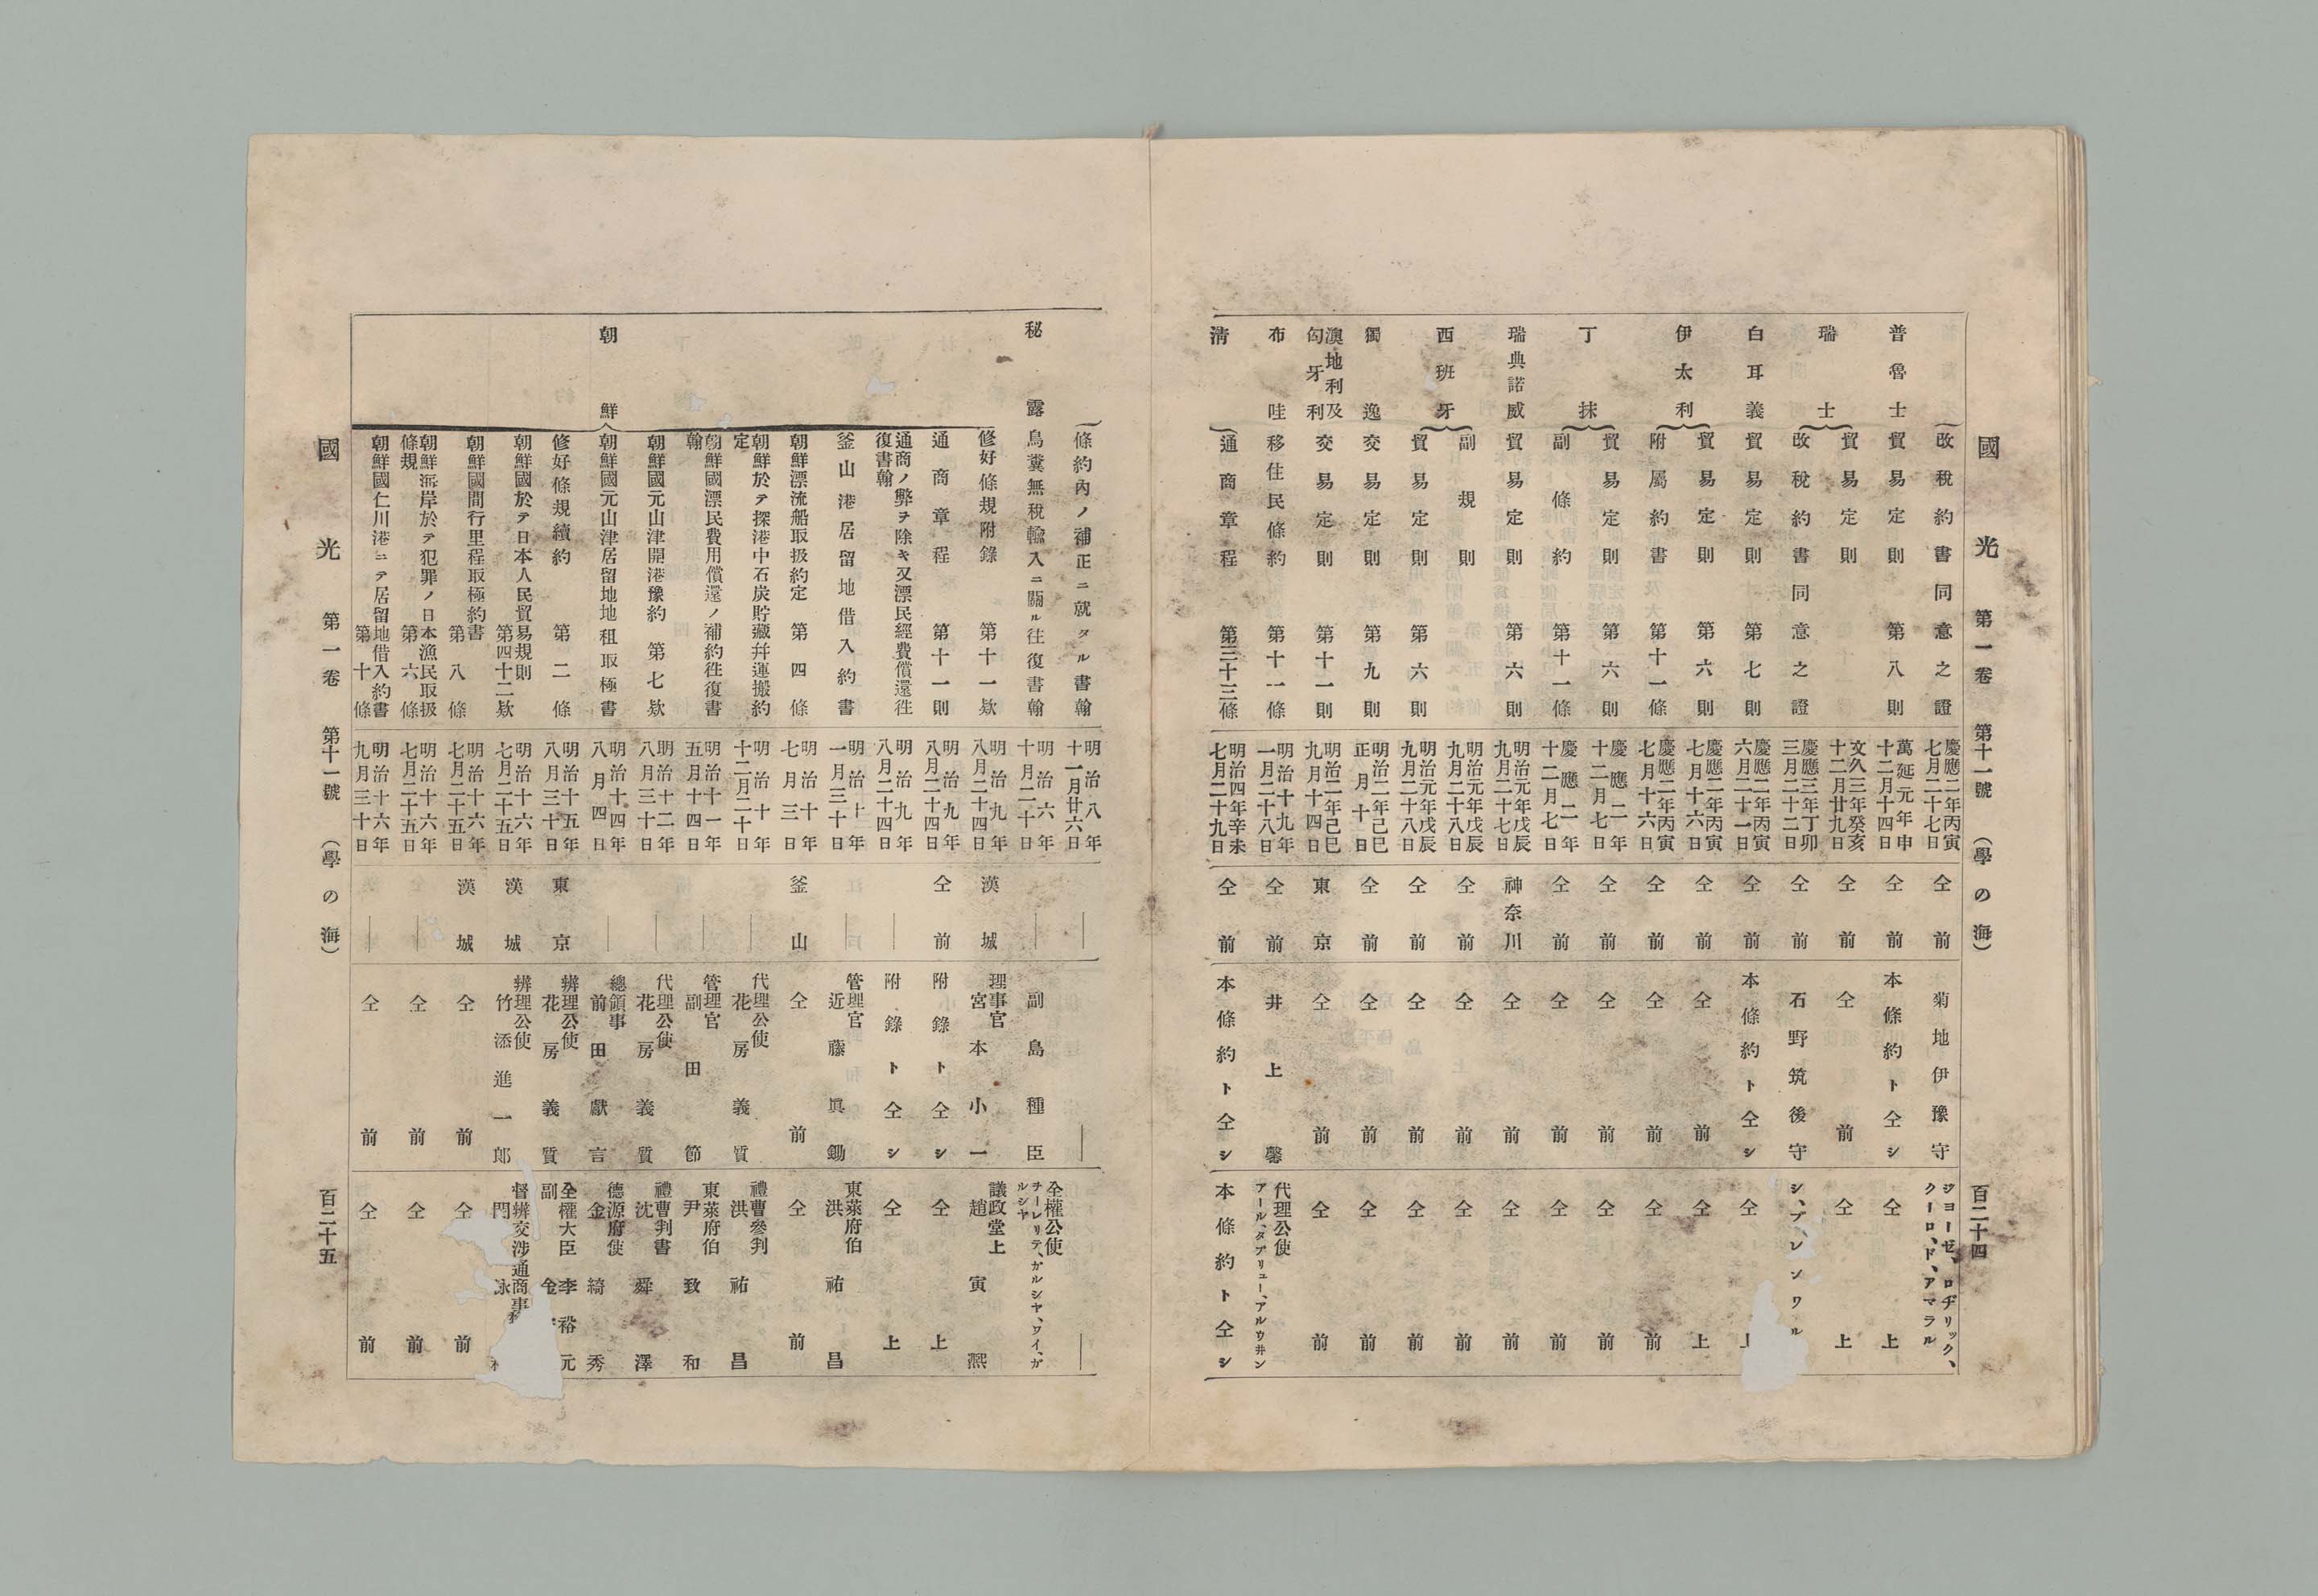 國光 第一卷 第十一號 (學の海) 百二十四
改稅約書同意之證 慶應二年丙寅七月二十七日 仝前 菊地伊豫守 ジヨーゼ、ロヂリック、クーロ、ド、アマラル
普魯士 貿易定則 第八則 萬延元年申十二月十四日 仝前 本條約ト仝シ 仝上
瑞士 貿易定則 文久三年癸亥十二月廿九日 仝前 仝前 仝上
改稅約書同意之證 慶應三年丁卯三月二十二日 仝前 石野筑後守 シ、ブレンワル
白耳義 貿易定則 第七則 慶應二年丙寅六月二十一日 仝前 本條約ト仝シ 仝
伊太利 貿易定則 第六則 慶應二年丙寅七月十六日 仝前 仝前 仝上
附屬約書 第十一條 慶應二年丙寅七月十六日 仝前 仝前 仝前
丁抹 貿易定則 第六則 慶應二年十二月七日 仝前 仝前 仝前
副條約 第十一條 慶應二年十二月七日 仝前 仝前 仝前
瑞典諾威 貿易定則 第六則 明治元年戊辰九月二十七日 神奈川 仝前 仝前
西班牙 副規則 明治元年戊辰九月二十八日 仝前 仝前 仝前
貿易定則 第六則 明治元年戊辰九月二十八日 仝前 仝前 仝前
獨逸 交易定則 第九則 明治二年己巳正月十日 仝前 仝前 仝前
澳地利及匈牙利 交易定則 第十一則 明治二年己巳九月十四日 東京 仝前 仝前
布哇 移住民條約 第十一條 明治十九年一月二十八日 仝前 井上馨 代理公使アール、ダブリュー、アルウ井ン
淸 通商章程 第三十三條 明治四年辛未七月二十九日 仝前 本條約ト仝シ 本條約ト仝シ
條約內ノ補正ニ就タル書翰 明治八年十一月廿六日
秘露 鳥糞無稅輸入ニ關ル往復書翰 明治六年十月二十日 副島種臣 全權公使チーレリテ、ガルシヤ、ワイ、ガルシヤ
朝鮮 修好條規附錄 第十一欵 明治九年八月二十四日 漢城 理事官宮本小一 議政堂上趙寅熙
通商章程 第十一則 明治九年八月二十四日 仝前 附錄ト仝シ 仝上
通商ノ弊ヲ除キ又漂民經費償還徃復書翰 明治九年八月二十四日 附錄ト仝シ 仝上
釜山港居留地借入約書 明治十年一月三十日 管理官近藤眞鋤 東萊府伯洪祐昌
朝鮮漂流船取扱約定 第四條 明治十年七月三日 釜山 仝前 仝前
朝鮮於テ探港中石炭貯藏幷運搬約定 明治十年十二月二十日 代理公使花房義質 禮曹參判洪祐昌
朝鮮國漂民費用償還ノ補約徃復書翰 明治十一年五月十四日 管理官副田節 東萊府伯尹致和
朝鮮國元山津開港豫約 第七欵 明治十二年八月三十日 代理公使花房義質 禮曹判書沈舜澤
朝鮮國元山津居留地地租取極書 明治十四年八月四日 總領事前田獻言 德源府使金綺秀
修好條規續約 第二條 明治十五年八月三十日 東京 辨理公使花房義質 全權大臣李裕元副 金
朝鮮國於テ日本人民貿易規則 第四十二欵 明治十六年七月二十五日 漢城 辨理公使竹添進一郎 督辨交涉通商事 閔泳
朝鮮國間行里程取極約書 第八條 明治十六年七月二十五日 漢城 仝前 仝前
朝鮮海岸於テ犯罪ノ日本漁民取扱條規 第六條 明治十六年七月二十五日 仝前 仝前
朝鮮國仁川港ニテ居留地借入約書 第十條 明治十六年九月三十日 仝前 仝前
國光 第一卷 第十一號 (學の海) 百二十五